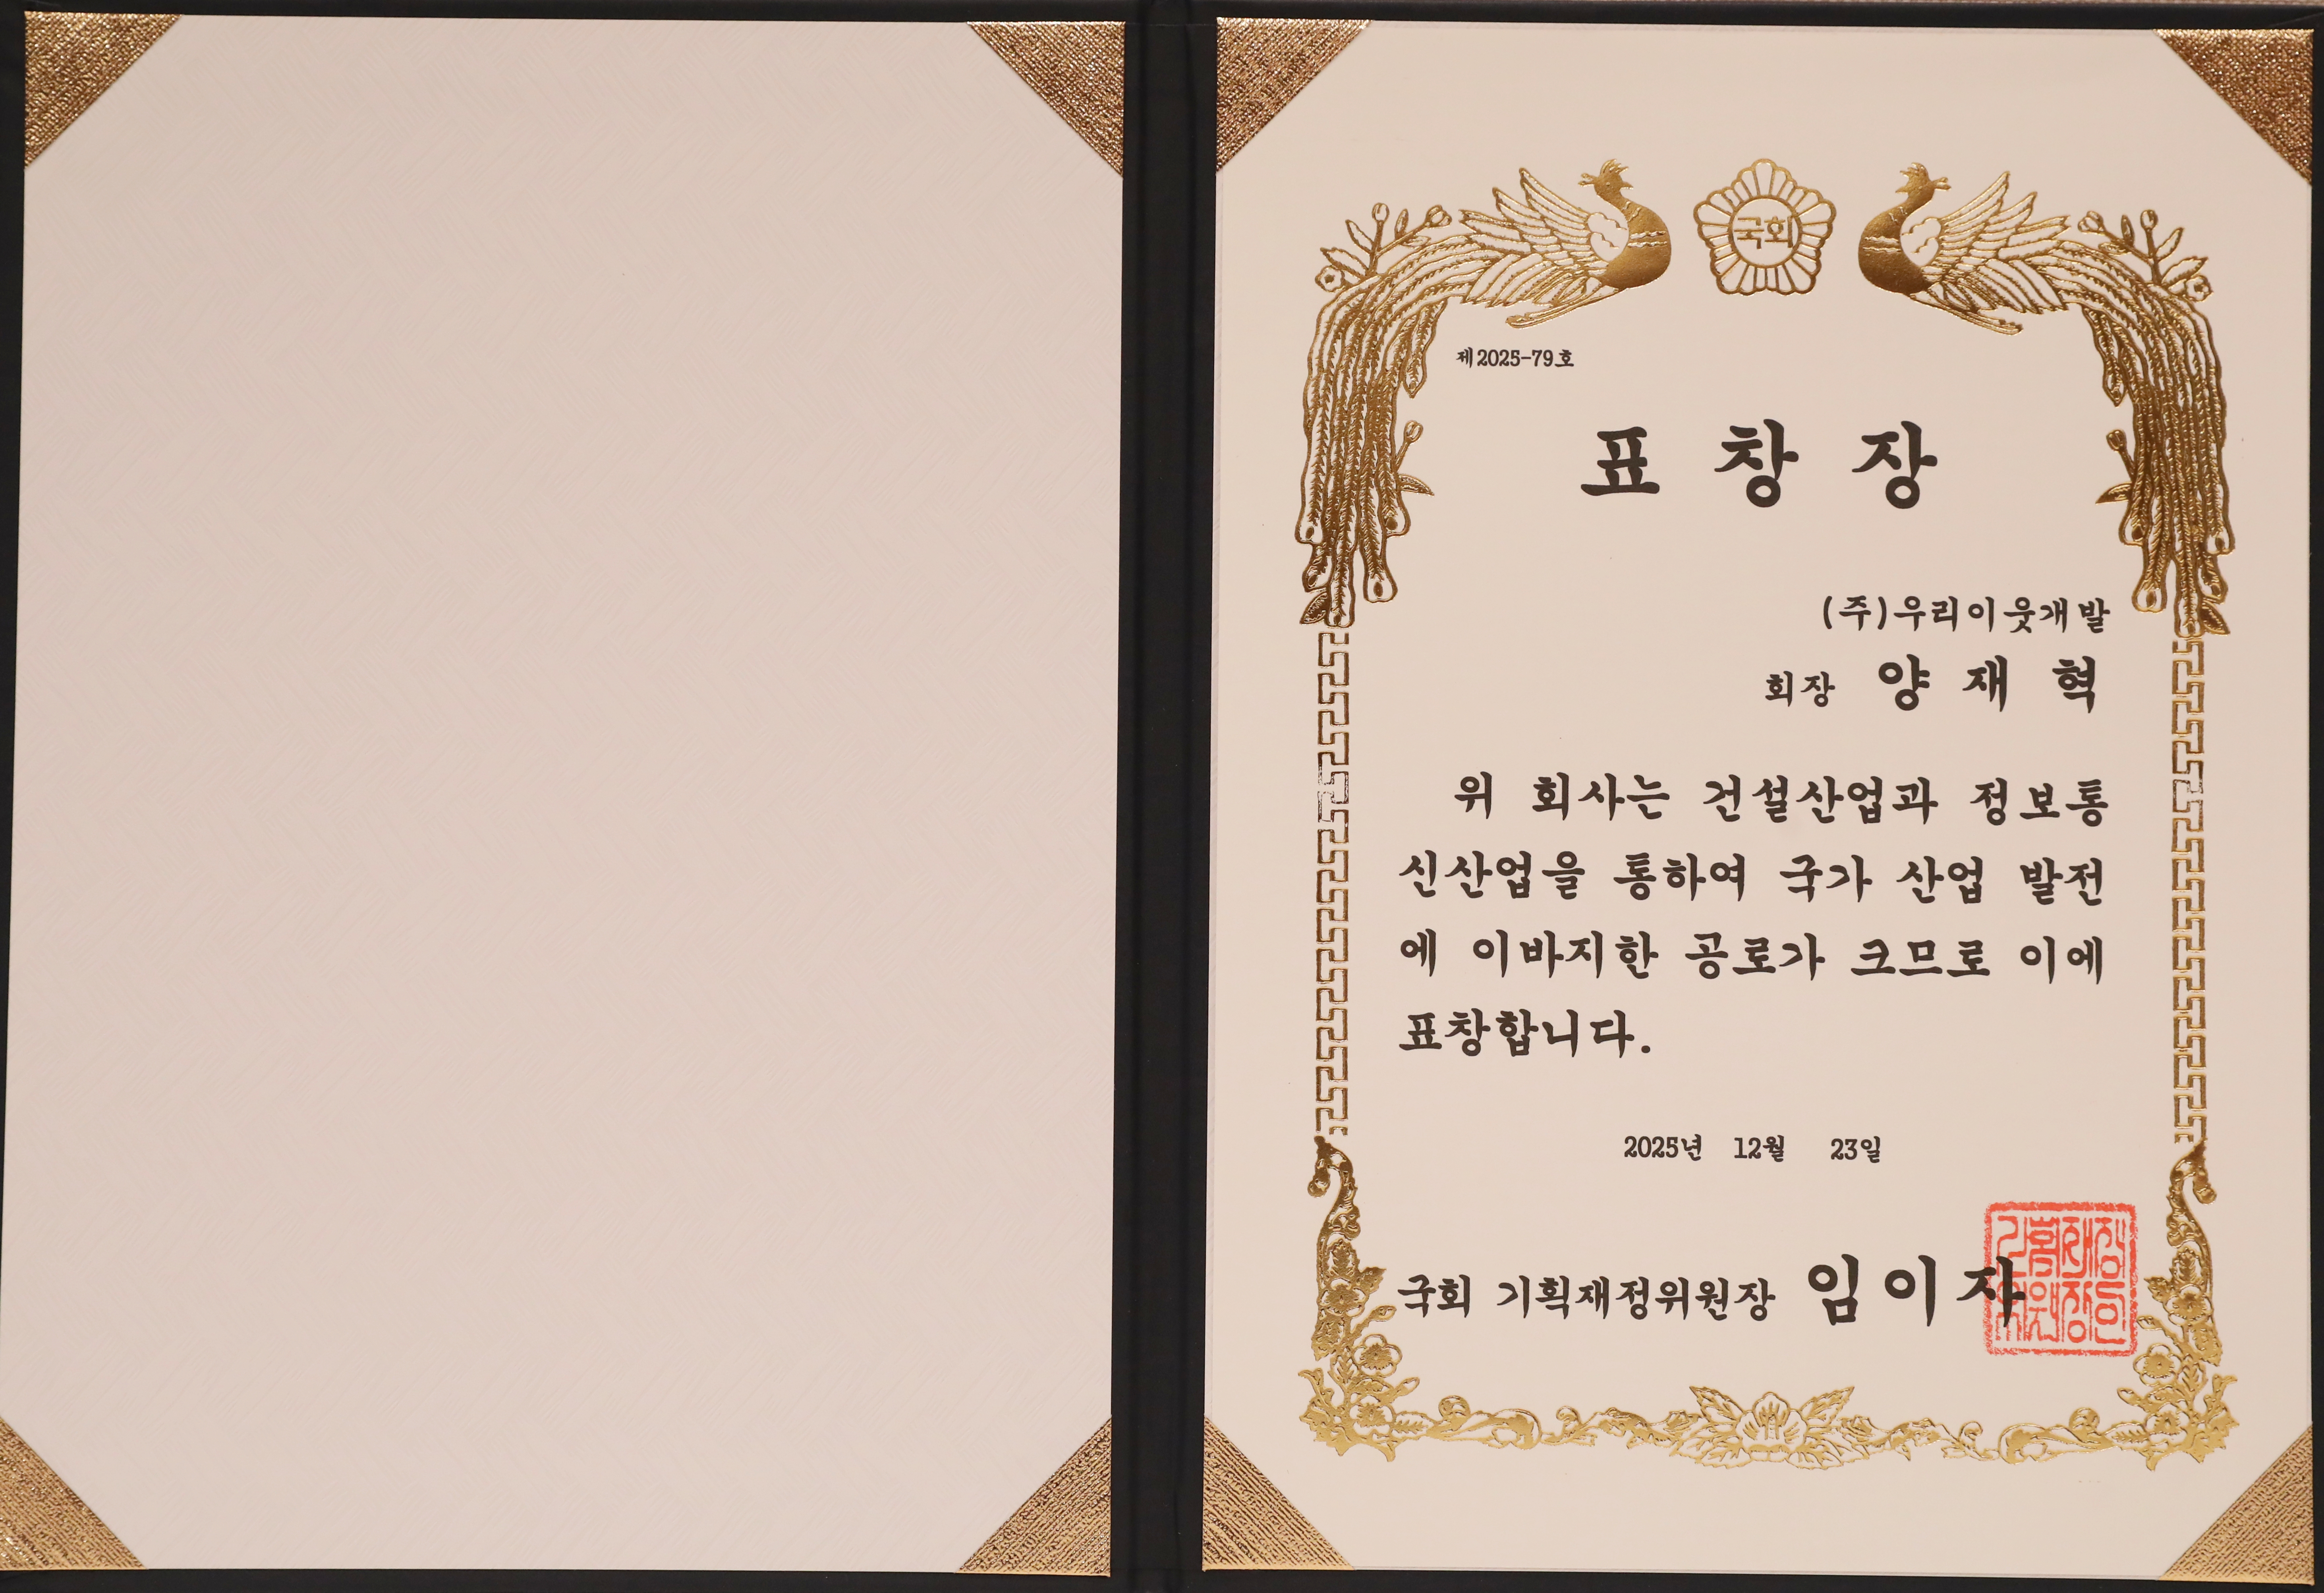 국회
제2025-79호
표 창 장
(주)우리이웃개발
회장 양 재 혁
위 회사는 건설산업과 정보통
신산업을 통하여 국가 산업 발전
에 이바지한 공로가 크므로 이에
표창합니다.
2025년 12월 23일
국회 기획재정위원장 임 이 자